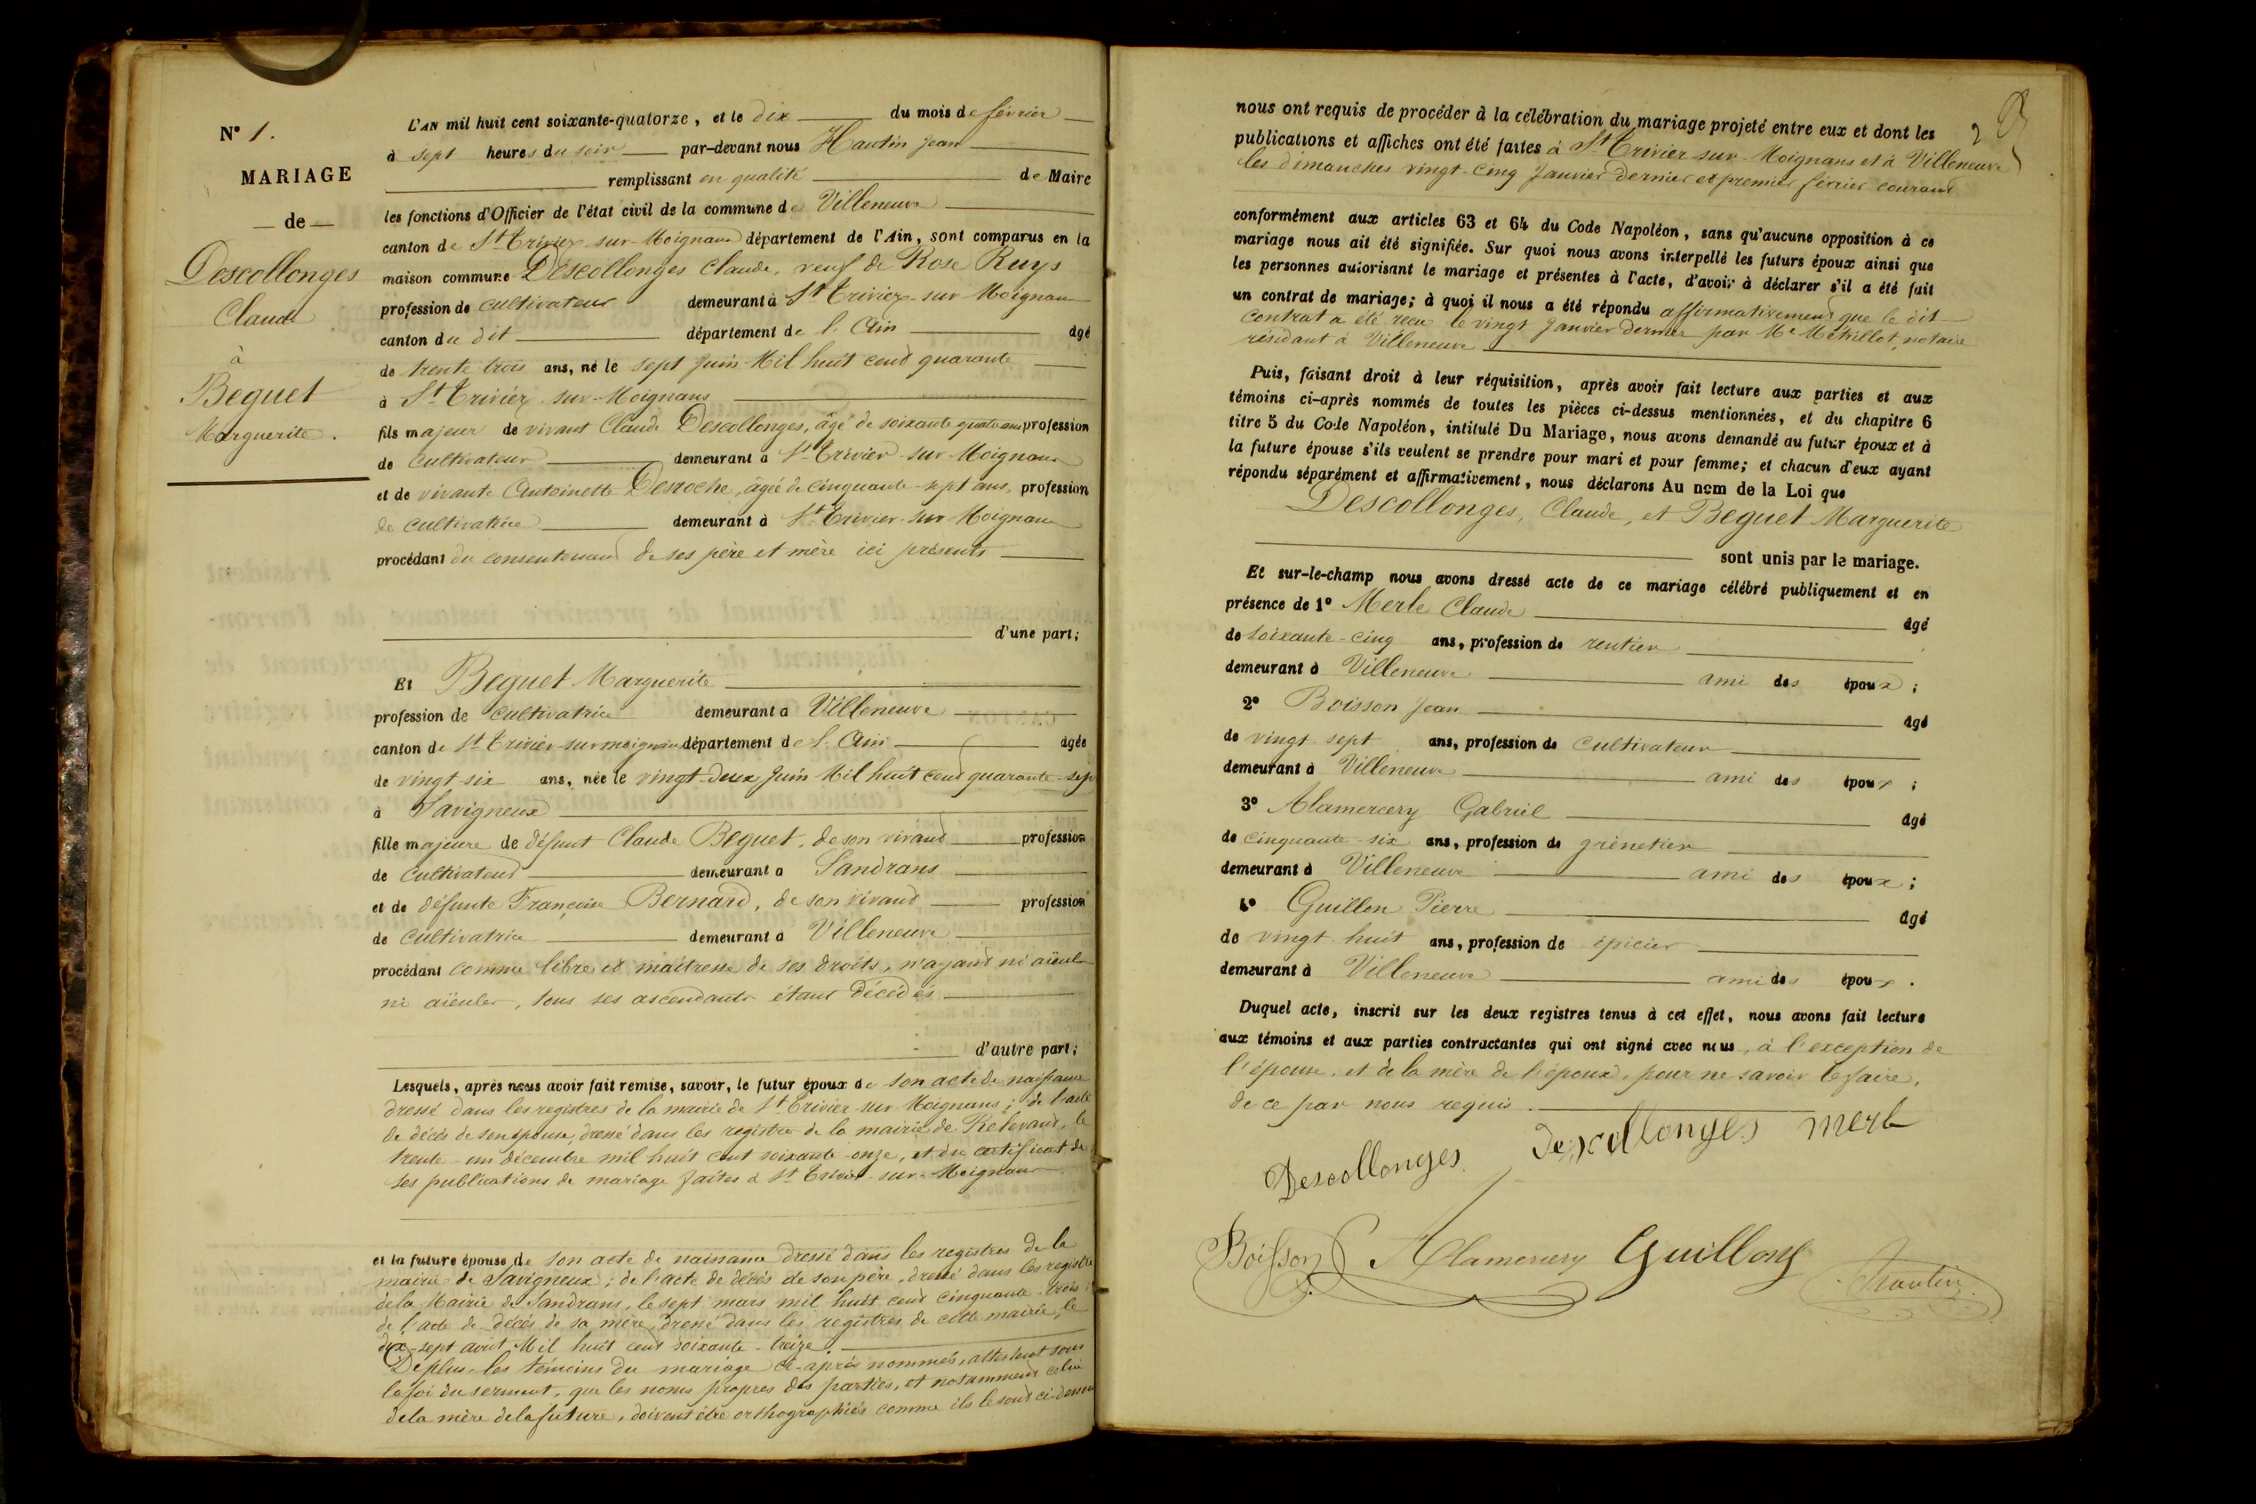 N° 1.
MARIAGE
— de —
Descollonges
Claude
à
Beguet
Marguerite.
L'AN mil huit cent soixante-quatorze, et le dix du mois de février
à sept heures du soir par-devant nous Hautin Jean
remplissant en qualité de Maire
les fonctions d'Officier de l'état civil de la commune de Villeneuve
canton de St Trivier-sur-Moignans département de l'Ain, sont comparus en la
maison commune Descollonges Claude, veuf de Rose Ruys
profession de cultivateur demeurant à St Trivier-sur-Moignans
canton du dit département de l'Ain âgé
de trente trois ans, né le sept Juin Mil huit cent quarante
à St Trivier-sur-Moignans
fils majeur de vivant Claude Descollonges, âgé de soixante quatre ans profession
de cultivateur demeurant à St Trivier-sur-Moignans
et de vivante Antoinette Desroche, âgée de cinquante-sept ans, profession
de cultivatrice demeurant à St Trivier-sur-Moignans
procédant du consentement de ses père et mère ici présents
d'une part;
Et Beguet Marguerite
profession de cultivatrice demeurant à Villeneuve
canton de St Trivier-sur-moignans département de l'Ain âgée
de vingt-six ans, née le vingt-deux Juin Mil huit cent quarante-sept
à Savigneux
fille majeure de défunt Claude Beguet, de son vivant profession
de cultivateur demeurant à Sandrans
et de défunte Françoise Bernard, de son vivant profession
de cultivatrice demeurant à Villeneuve
procédant comme libre et maîtresse de ses droits, n'ayant ni aïeuls
ni aïeules, tous ses ascendants étant décédés
d'autre part;
Lesquels, après nous avoir fait remise, savoir, le futur époux de son acte de naissance
dressé dans les registres de la mairie de St Trivier-sur-Moignans; de l'acte
de décès de son épouse, dressé dans les registres de la mairie de Relevant, le
trente-un décembre mil huit cent soixante-onze, et du certificat de
ses publications de mariage faites à St Trivier-sur-Moignans
et la future épouse de son acte de naissance dressé dans les registres de la
mairie de Savigneux; de l'acte de décès de son père, dressé dans les registres
de la Mairie de Sandrans, le sept mars mil huit cent cinquante-trois;
de l'acte de décès de sa mère, dressé dans les registres de cette mairie, le
dix-sept août Mil huit cent soixante-treize.
De plus, les témoins du mariage ci-après nommés, attestent sous
la foi du serment, que les noms propres des parties, et notamment celui
de la mère de la future, doivent être orthographiés comme ils le sont ci-dessus
2
nous ont requis de procéder à la célébration du mariage projeté entre eux et dont les
publications et affiches ont été faites à St Trivier-sur-Moignans et à Villeneuve
les dimanches vingt-cinq Janvier dernier et premier février courant
conformément aux articles 63 et 64 du Code Napoléon, sans qu'aucune opposition à ce
mariage nous ait été signifiée. Sur quoi nous avons interpellé les futurs époux ainsi que
les personnes autorisant le mariage et présentes à l'acte, d'avoir à déclarer s'il a été fait
un contrat de mariage; à quoi il nous a été répondu affirmativement que le dit
contrat a été reçu le vingt Janvier dernier par Me Métrillot, notaire
résidant à Villeneuve
Puis, faisant droit à leur réquisition, après avoir fait lecture aux parties et aux
témoins ci-après nommés de toutes les pièces ci-dessus mentionnées, et du chapitre 6
titre 5 du Code Napoléon, intitulé Du Mariage, nous avons demandé au futur époux et à
la future épouse s'ils veulent se prendre pour mari et pour femme; et chacun d'eux ayant
répondu séparément et affirmativement, nous déclarons Au nom de la Loi que
Descollonges, Claude, et Beguet Marguerite
sont unis par le mariage.
Et sur-le-champ nous avons dressé acte de ce mariage célébré publiquement et en
présence de 1° Merle Claude âgé
de soixante-cinq ans, profession de rentier
demeurant à Villeneuve ami des époux;
2° Boisson Jean âgé
de vingt-sept ans, profession de cultivateur
demeurant à Villeneuve ami des époux;
3° Alamercery Gabriel âgé
de cinquante-six ans, profession de grènetier
demeurant à Villeneuve ami des époux;
4° Guillon Pierre âgé
de vingt huit ans, profession de épicier
demeurant à Villeneuve ami des époux.
Duquel acte, inscrit sur les deux registres tenus à cet effet, nous avons fait lecture
aux témoins et aux parties contractantes qui ont signé avec nous, à l'exception de
l'épouse, et de la mère de l'époux, pour ne savoir le faire,
de ce par nous requis.
Descollonges Descollonges merle
Boisson Alamercery Guillon Hautin